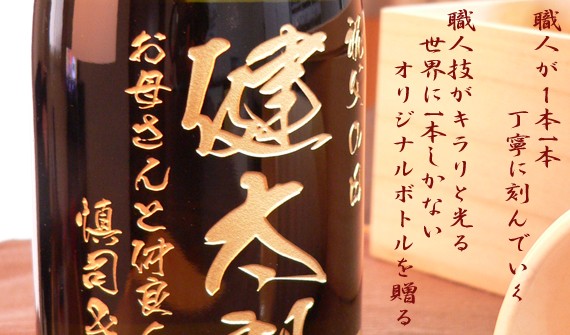 職人が1本1本
丁寧に刻んでいく
職人技がキラリと光る
世界に1本しかない
オリジナルボトルを贈る
祝父の日
健太郎
お母さんと仲良く
慎司